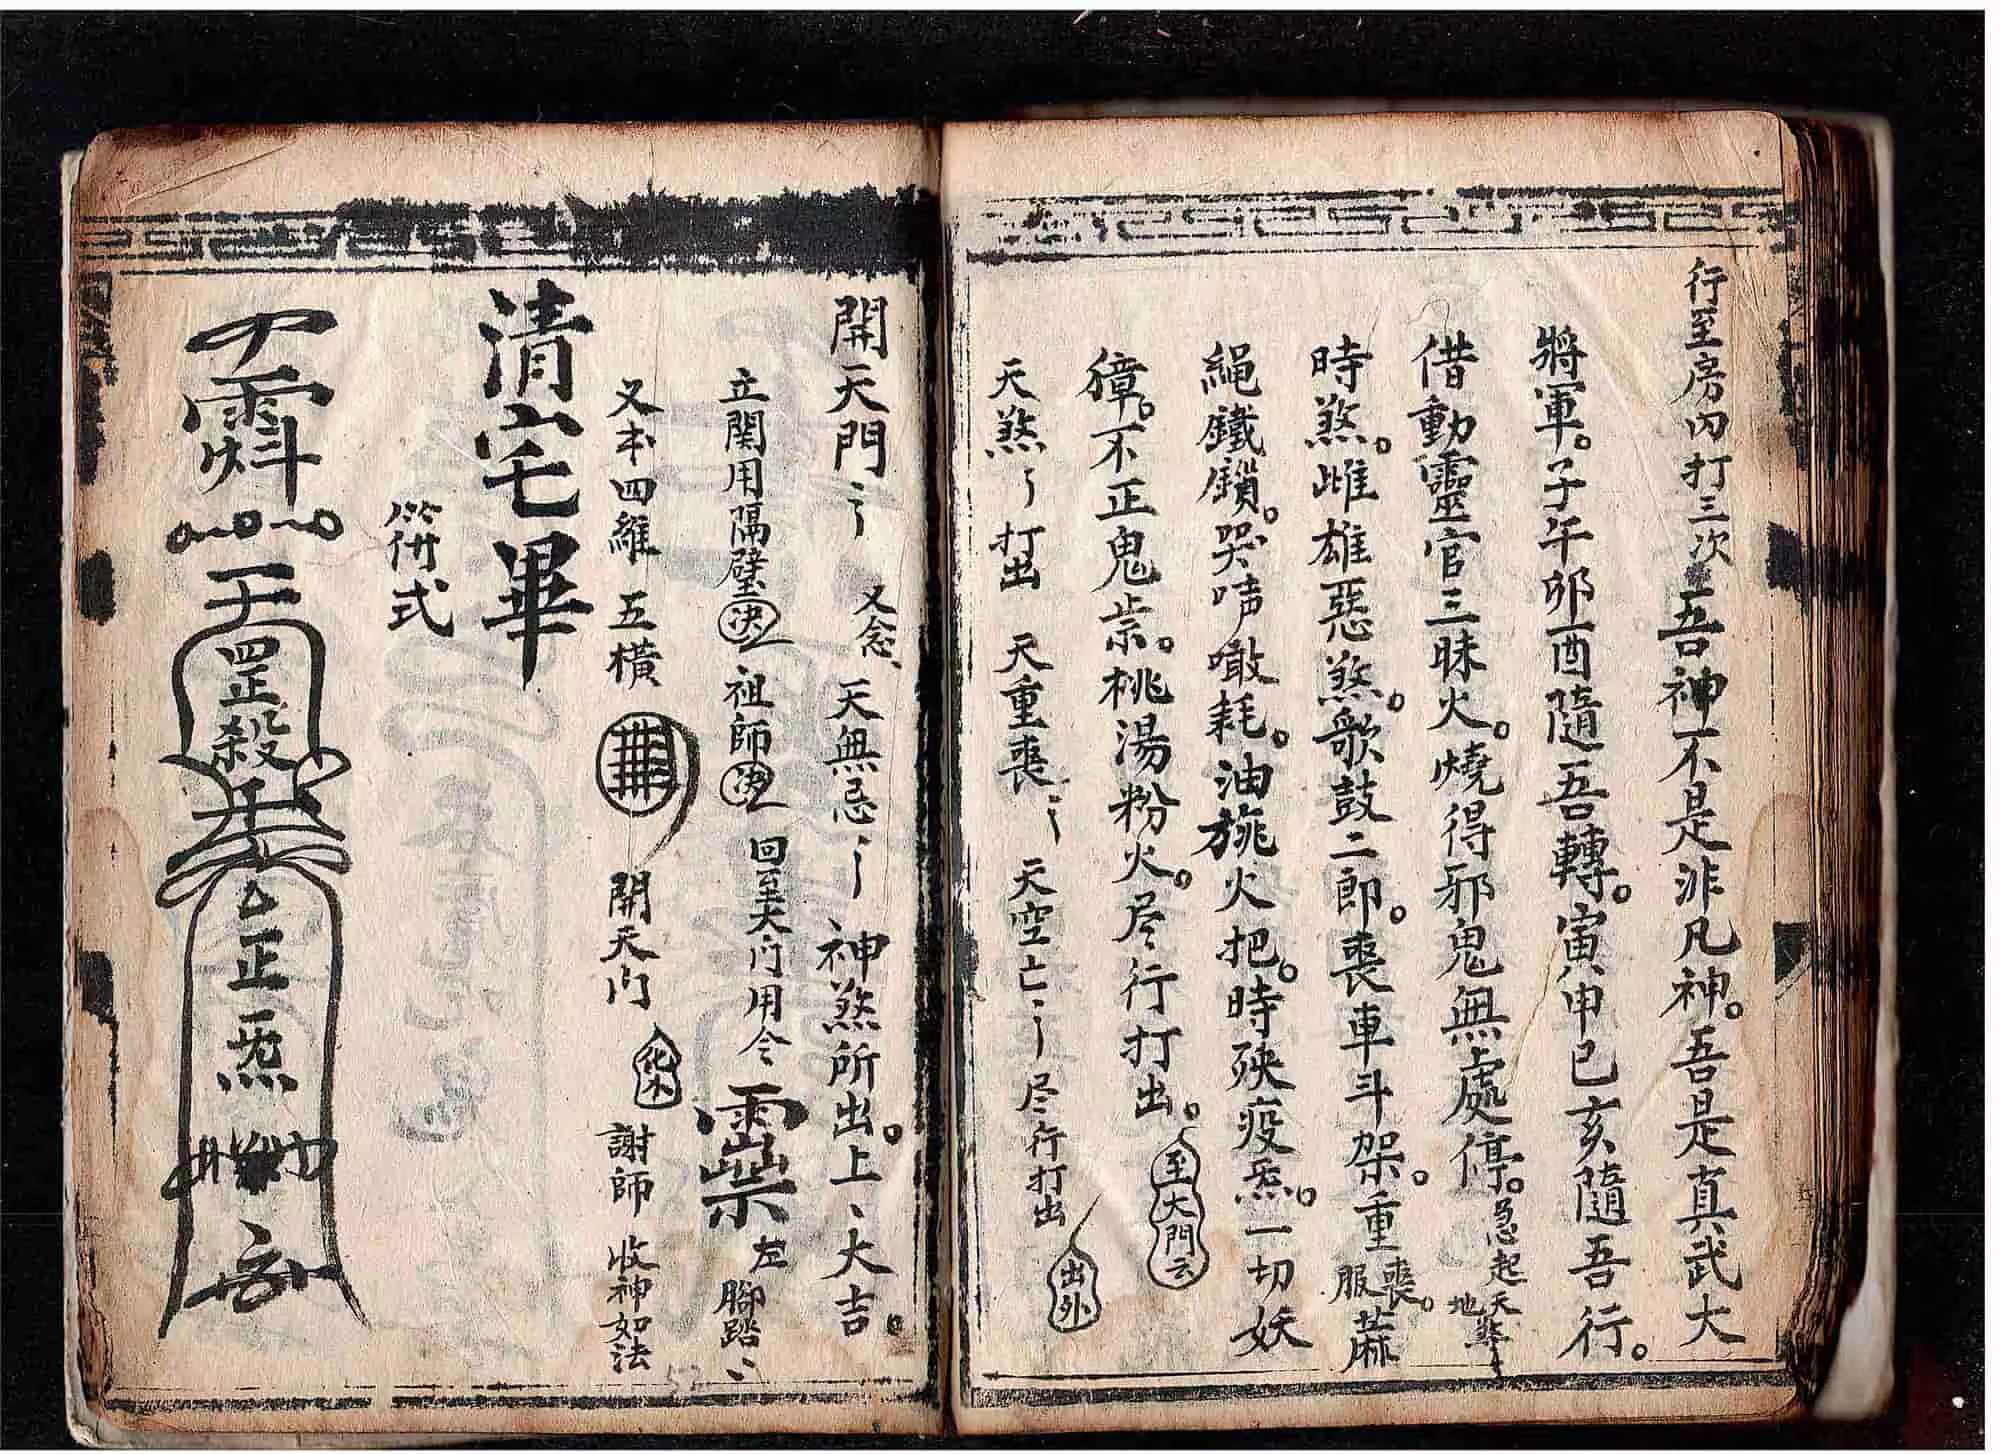 行至房内打三次吾神不是非凡神。吾是真武大
將軍。子午卯酉隨吾轉。寅申巳亥隨吾行。
借動靈官三昧火。燒得邪鬼無處停。急起天煞地
時煞。雌雄惡煞。歌鼓二郎。喪車斗架。重喪。服麻
繩鐵鎖。哭声噉耗。油旐火把。時殃疫炁。一切妖
獐。不正鬼祟。桃湯粉火。尽行打出。至大門云
天煞〻打出 天重喪〻 天空亡〻尽行打出 出外
開天門〻 又念、天無忌〻神煞所出。上、大吉。
立閣用隔壁决 祖師决 回至大门用令 左腳踏〻
又本四維五橫 開天门 化小 謝師 收神如法
清宅畢
符式
罡殺
正炁